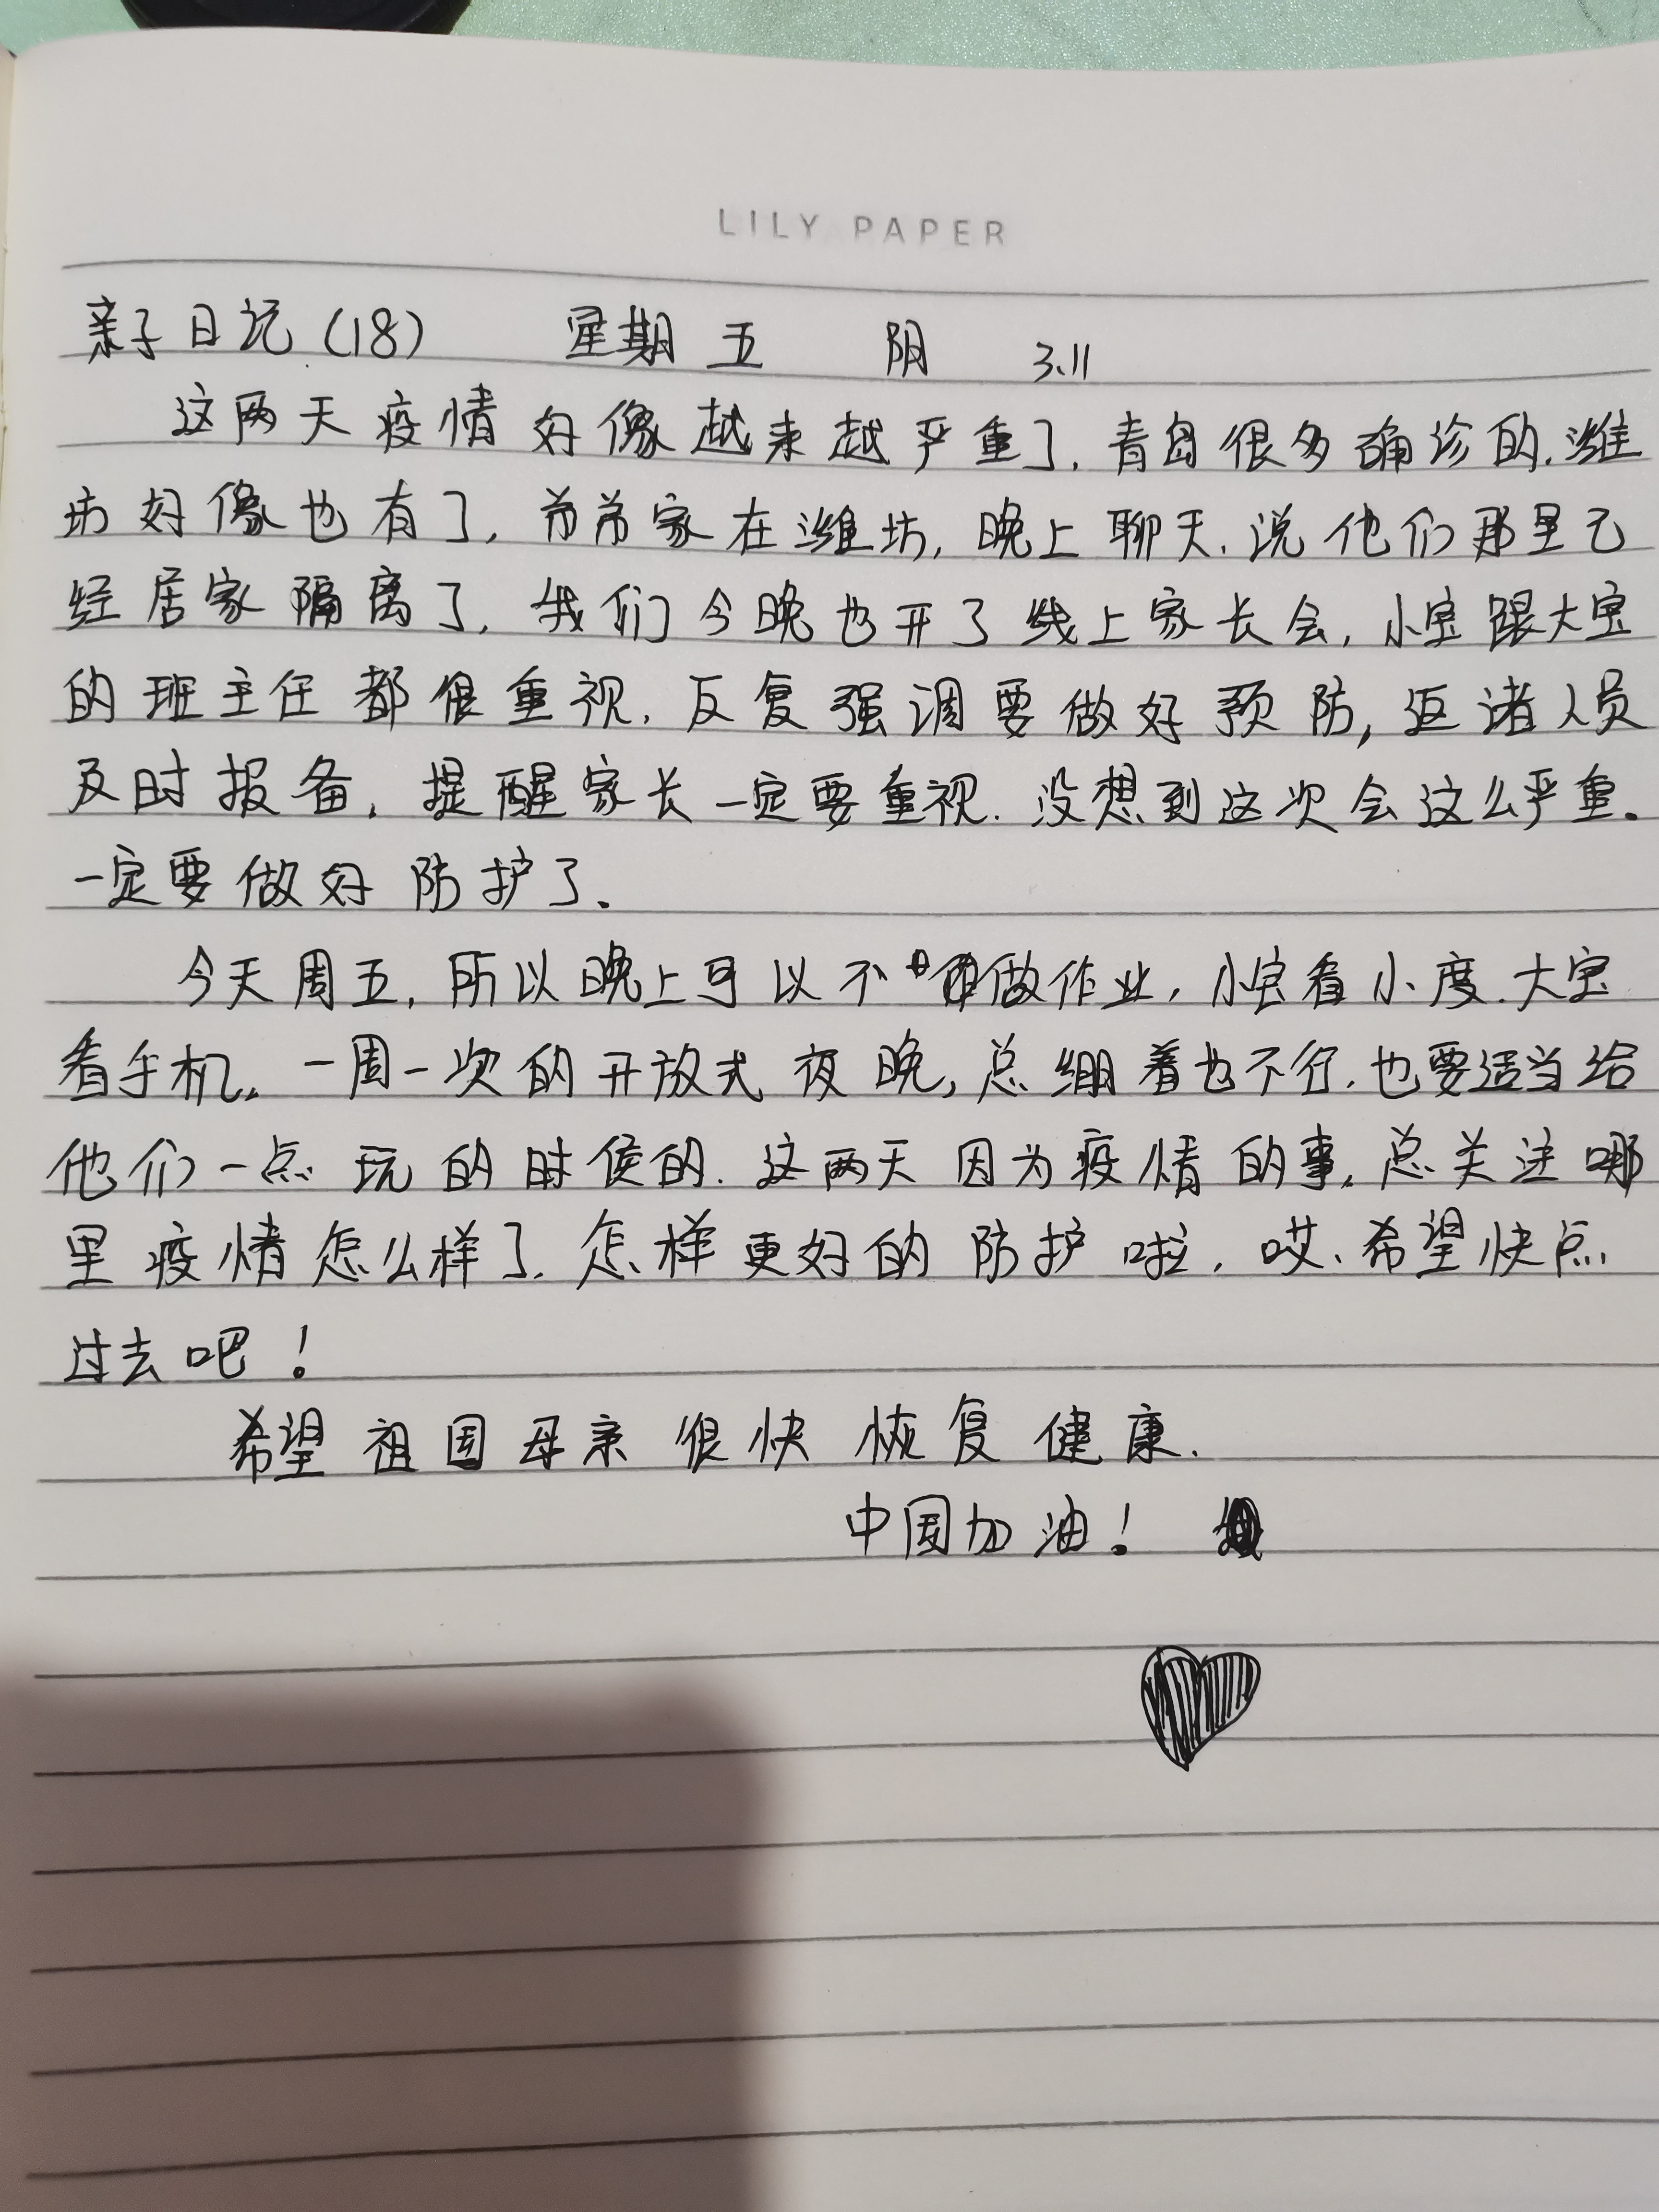 LILY PAPER
亲子日记(18) 星期五 阴 3.11
这两天疫情好像越来越严重了,青岛很多确诊的.潍
坊好像也有了,芾芾家在潍坊,晚上聊天.说他们那里已
经居家隔离了,我们今晚也开了线上家长会,小宝跟大宝
的班主任都很重视.反复强调要做好预防,返诸人员
及时报备,提醒家长一定要重视.没想到这次会这么严重.
一定要做好防护了.
今天周五,所以晚上可以不做作业,小宝看小度.大宝
看手机.一周一次的开放式夜晚,总绷着也不行.也要适当给
他们一点玩的时侯的.这两天因为疫情的事,总关注哪
里疫情怎么样了.怎样更好的防护啦,哎、希望快点
过去吧!
希望祖国母亲很快恢复健康.
中国加油!